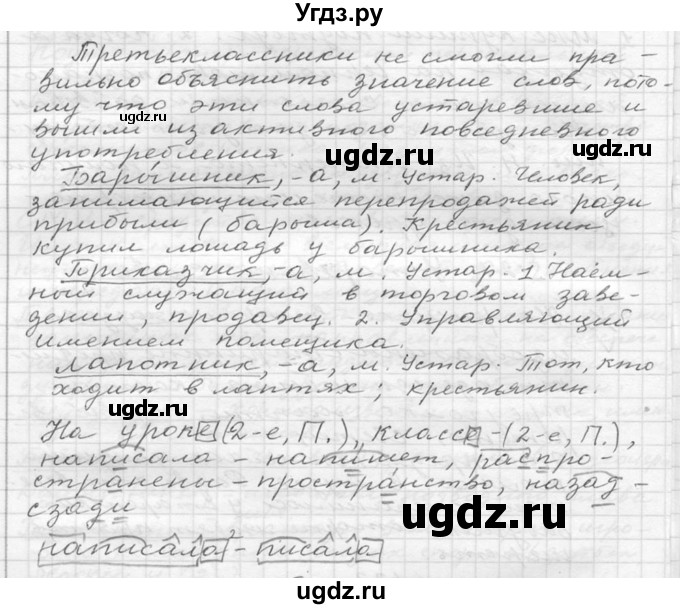 Угдз.ру
Третьеклассники не смогли пра-
вильно объяснить значение слов, пото-
му что эти слова устаревшие и
вышли из активного повседневного
употребления.
Барышник, -а, м. Устар. Человек,
занимающийся перепродажей ради
прибыли (барыша). Крестьянин
купил лошадь у барышника.
Приказчик, -а, м. Устар. 1 Наём-
ный служащий в торговом заве-
дении, продавец. 2. Управляющий
имением помещика.
Лапотник, -а, м. Устар. Тот, кто
ходит в лаптях; крестьянин.
На уроке (2-е, П.), классе - (2-е, П.),
написала - напишет, распро-
странены - пространство, назад -
сзади
написала² - писала
ugdz.ru
ugdz.ru
ugdz.ru
ugdz.ru
ugdz.ru
ugdz.ru
ugdz.ru
ugdz.ru